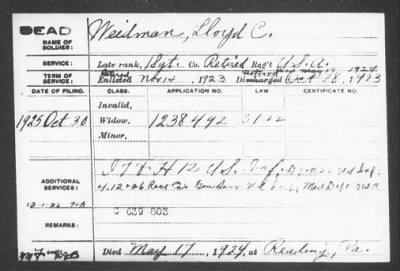 DEAD
NAME OF SOLDIER: Weidman, Lloyd C.
SERVICE: Late rank, Sgt. Co. Retired Reg't U.S.A.
TERM OF SERVICE: Retired Enlisted Nov 14, 1923. Discharged Oct 28, 1923
DATE OF FILING. CLASS. APPLICATION NO. LAW. CERTIFICATE NO.
Invalid,
1925 Oct 30 Widow, 1238492
Minor,
ADDITIONAL SERVICES: I & H 12 U.S. Inf.
Med. Dept. USA
REMARKS: C 639 803
Died May 17, 1924, at Reading, Pa.